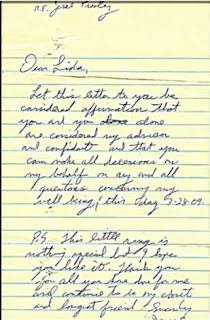 RE.
Dear Lida,
Let this letter to you be
considered affirmation that
you are you alone
are considered my advisor
and confidant and that you
can make all decisions on
my behalf on any and all
questions concerning my
well being, this day 7-28-09.
P.S. This little ring is
nothing special but I hope
you like it. Thank you
for all you have done for me
and continue to be my closest
and longest friend. Sincerely